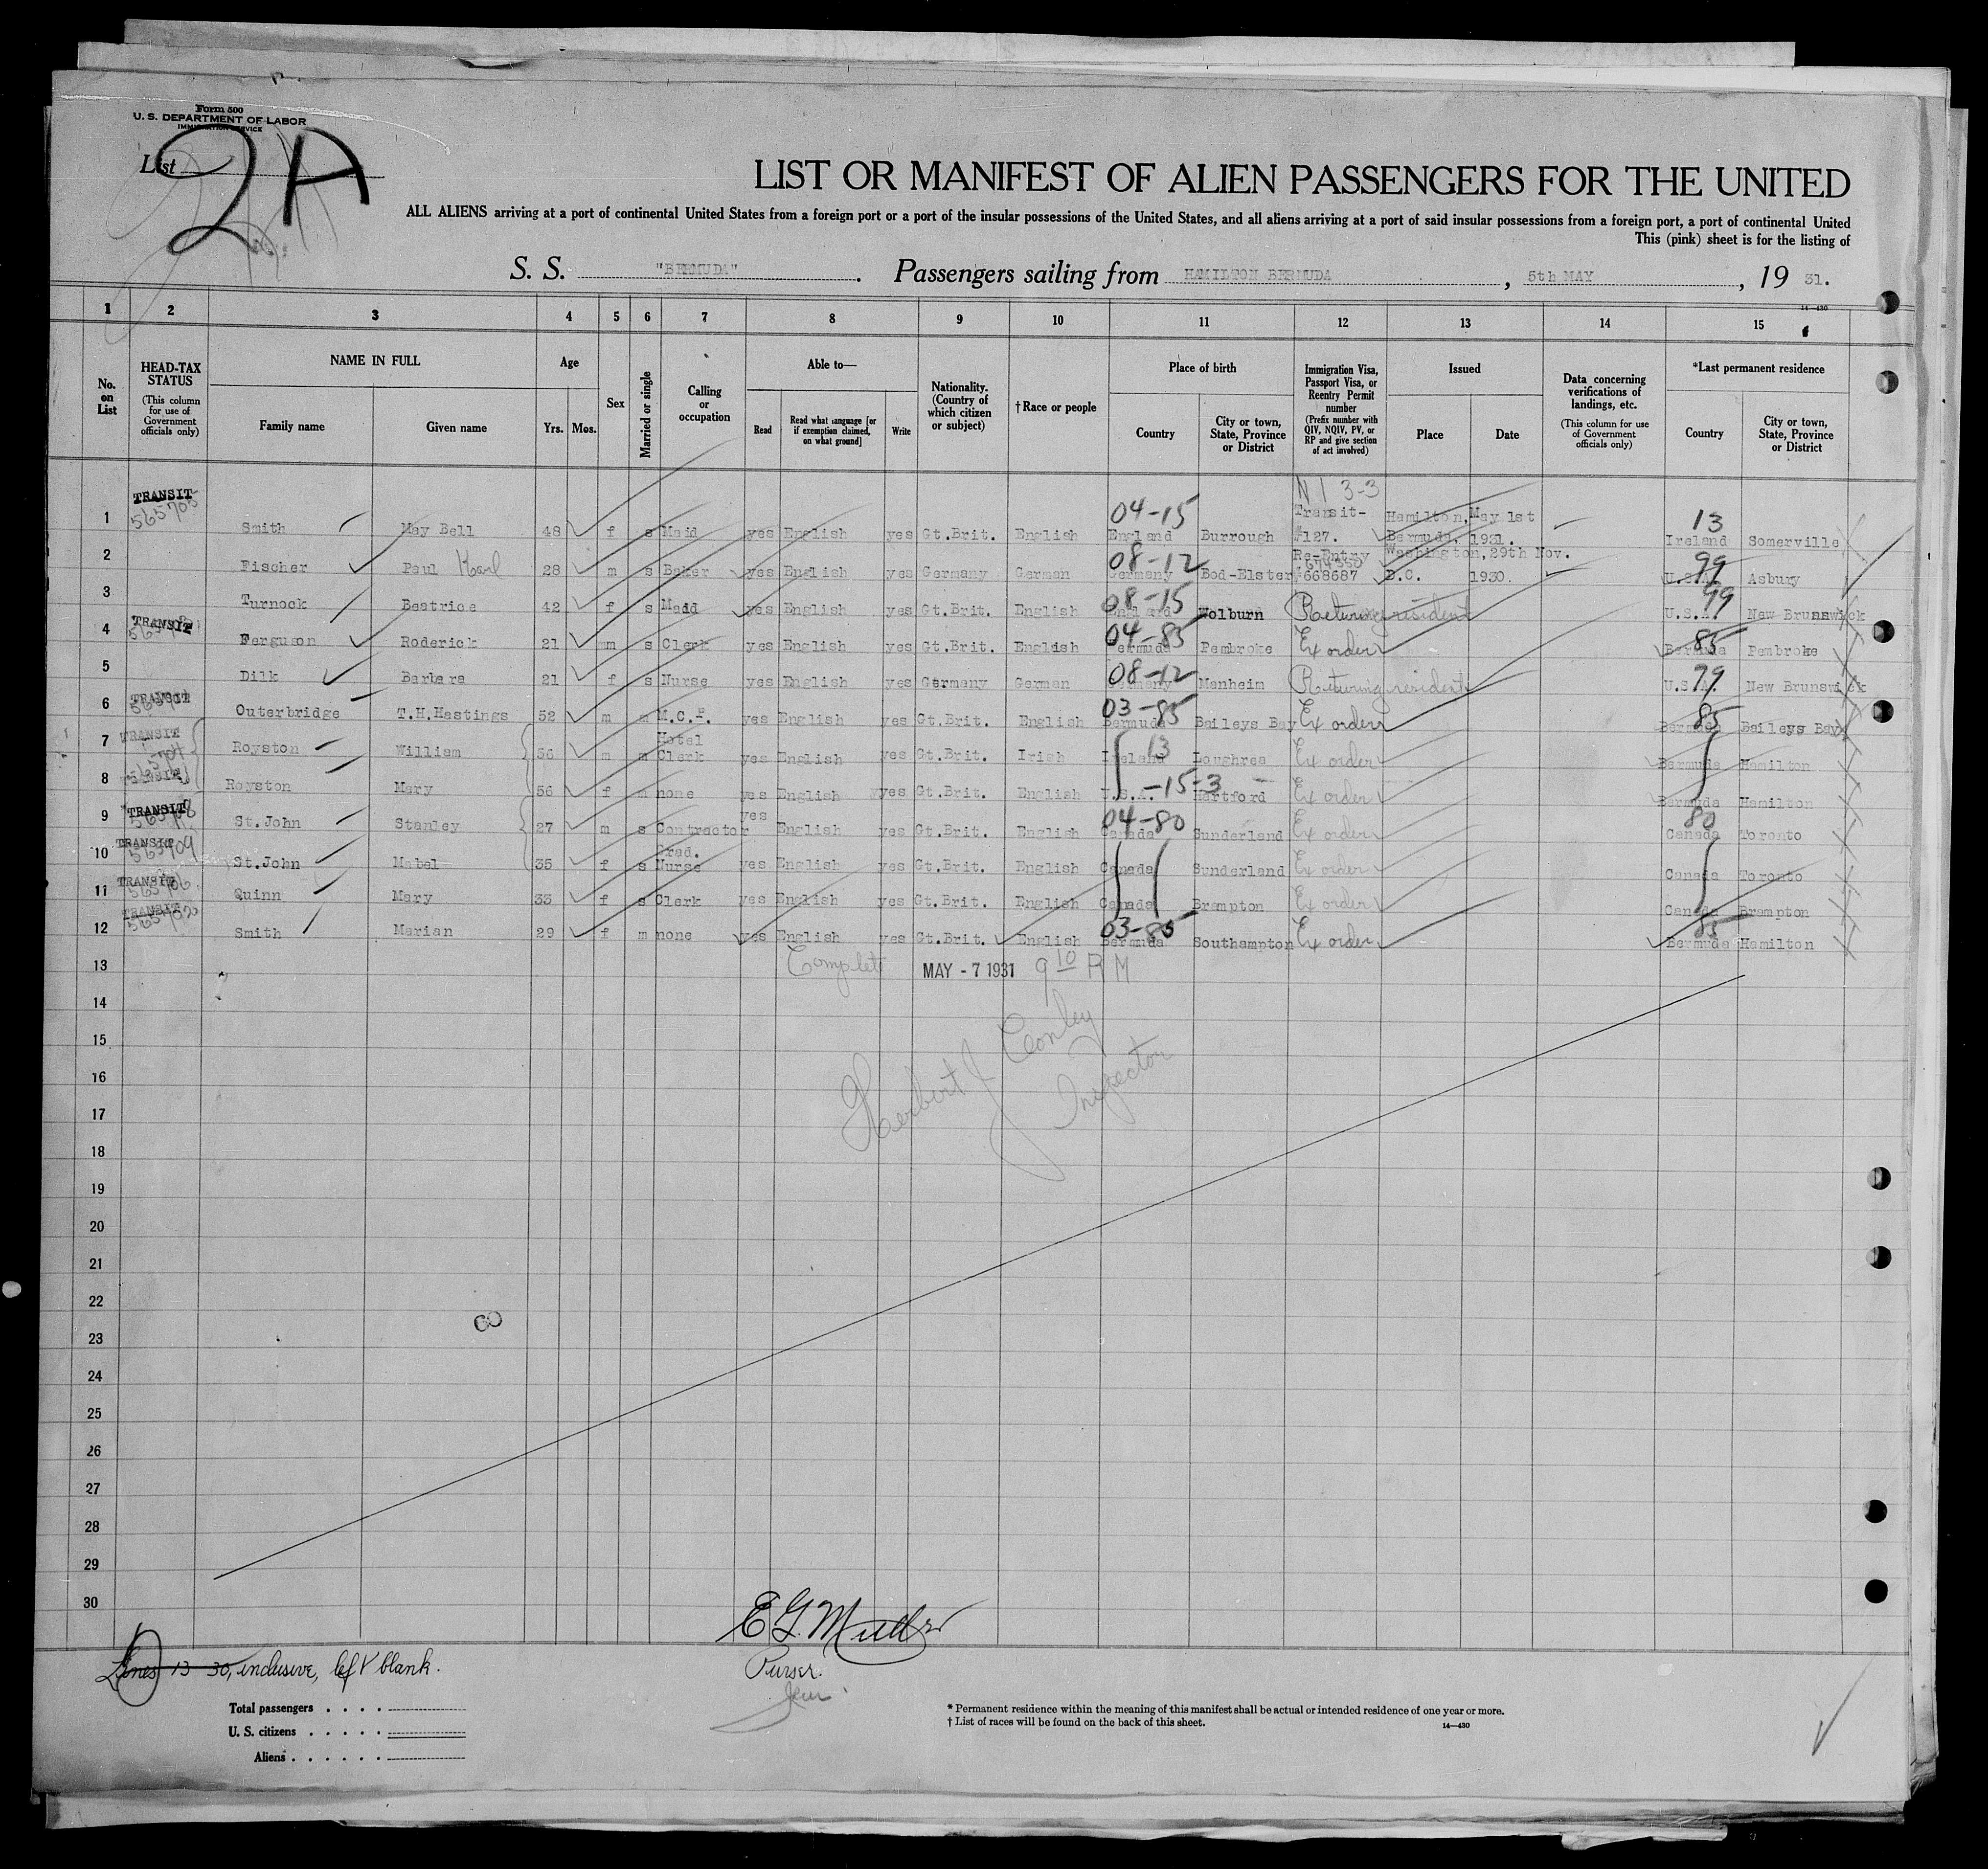 Form 500
U. S. DEPARTMENT OF LABOR
IMMIGRATION SERVICE
List 2A
LIST OR MANIFEST OF ALIEN PASSENGERS FOR THE UNITED
ALL ALIENS arriving at a port of continental United States from a foreign port or a port of the insular possessions of the United States, and all aliens arriving at a port of said insular possessions from a foreign port, a port of continental United
This (pink) sheet is for the listing of
S. S. "BERMUDA". Passengers sailing from HAMILTON BERMUDA, 5th MAY, 19 31.
14—430
1 2 3 4 5 6 7 8 9 10 11 12 13 14 15
No. on List
HEAD-TAX STATUS (This column for use of Government officials only)
NAME IN FULL
Family name Given name
Age
Yrs. Mos.
Sex
Married or single
Calling or occupation
Able to—
Read Read what language [or if exemption claimed, on what ground] Write
Nationality. (Country of which citizen or subject)
†Race or people
Place of birth
Country City or town, State, Province or District
Immigration Visa, Passport Visa, or Reentry Permit number (Prefix number with QIV, NQIV, PV, or RP and give section of act involved)
Issued
Place Date
Data concerning verifications of landings, etc. (This column for use of Government officials only)
*Last permanent residence
Country City or town, State, Province or District
N I 3-3
TRANSIT 565705 04-15 Transit- Hamilton, May 1st 13
1 Smith May Bell 48 f s Maid yes English yes Gt.Brit. English England Burrough #127. Bermuda. 1931. Ireland Somerville
08-12 Re-Entry Washington, 29th Nov. 99
2 Fischer Paul Karl 28 m s Baker yes English yes Germany German Germany Bod-Elster #668687 D.C. 1930. U.S.A. Asbury
08-15 99
3 Turnock Beatrice 42 f s Maid yes English yes Gt.Brit. English England Wolburn Returning resident U.S.A. New Brunswick
TRANSIT 04-85 85
4 Ferguson Roderick 21 m s Clerk yes English yes Gt.Brit. English Bermuda Pembroke Ex order Bermuda Pembroke
08-12 99
5 Dilk Barbara 21 f s Nurse yes English yes Germany German Germany Manheim Returning resident U.S.A. New Brunswick
TRANSIT 03-85 85
6 Outerbridge T.H.Hastings 52 m m M.C.P. yes English yes Gt.Brit. English Bermuda Baileys Bay Ex order Bermuda Baileys Bay
TRANSIT Hotel 13
7 Royston William 56 m m Clerk yes English yes Gt.Brit. Irish Ireland Loughrea Ex order Bermuda Hamilton
TRANSIT -15-3
8 Royston Mary 56 f m none yes English yes Gt.Brit. English U.S.A. Hartford Ex order Bermuda Hamilton
TRANSIT 04-80 80
9 St.John Stanley 27 m s Contractor yes English yes Gt.Brit. English Canada Sunderland Ex order Canada Toronto
TRANSIT 565709 Grad.
10 St.John Mabel 35 f s Nurse yes English yes Gt.Brit. English Canada Sunderland Ex order Canada Toronto
TRANSIT
11 Quinn Mary 33 f s Clerk yes English yes Gt.Brit. English Canada Brampton Ex order Canada Brampton
TRANSIT 03-85 85
12 Smith Marian 29 f m none yes English yes Gt.Brit. English Bermuda Southampton Ex order Bermuda Hamilton
13 Complete MAY - 7 1931 9 10 A M
14
15
16
17
18
Herbert J Conley
Inspector
19
20
21
22
23
24
25
26
27
28
29
30
E G Muller
Purser.
Lines 13 30, inclusive, left blank.
Total passengers
U. S. citizens
Aliens
* Permanent residence within the meaning of this manifest shall be actual or intended residence of one year or more.
† List of races will be found on the back of this sheet.
14—430